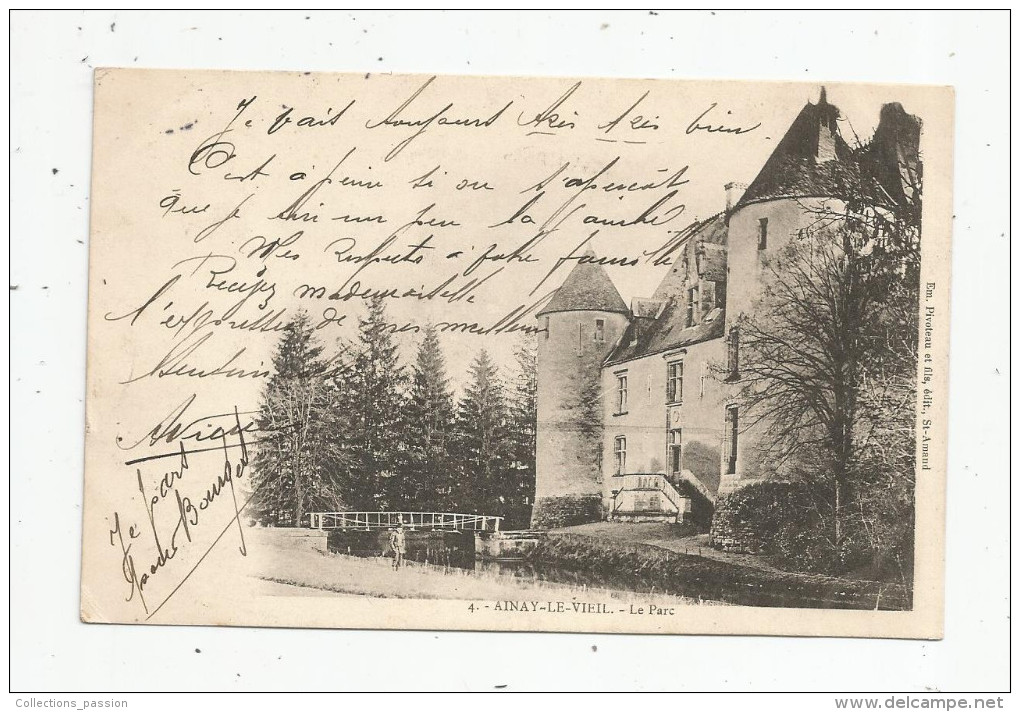 Je vais toujours Azis Azis bien
C'est à peine si on s'aperçoit
que je suis un peu la Gauche.
Mes Respects à votre famille
Recevez mademoiselle
l'expression de mes meilleurs
Sentim
Je pars
pour Bourges
Em. Pivoteau et fils, édit., St-Amand
4. - AINAY-LE-VIEIL. - Le Parc
Collections_passion
www.delcampe.net